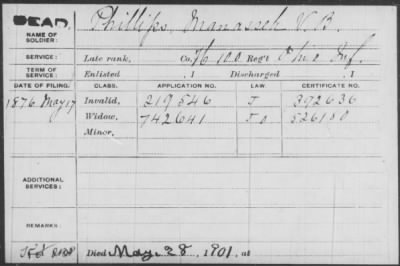 DEAD.
NAME OF SOLDIER: Phillips, Manasseh V. B.
SERVICE: Late rank, Co. H 100 Reg't Ohio Inf.
TERM OF SERVICE: Enlisted , 1 Discharged , 1
DATE OF FILING. CLASS. APPLICATION NO. LAW. CERTIFICATE NO.
1876 May 17 Invalid, 219 546 J 392636
Widow, 742641 526180
Minor,
ADDITIONAL SERVICES:
REMARKS:
Died May 28, 1901, at